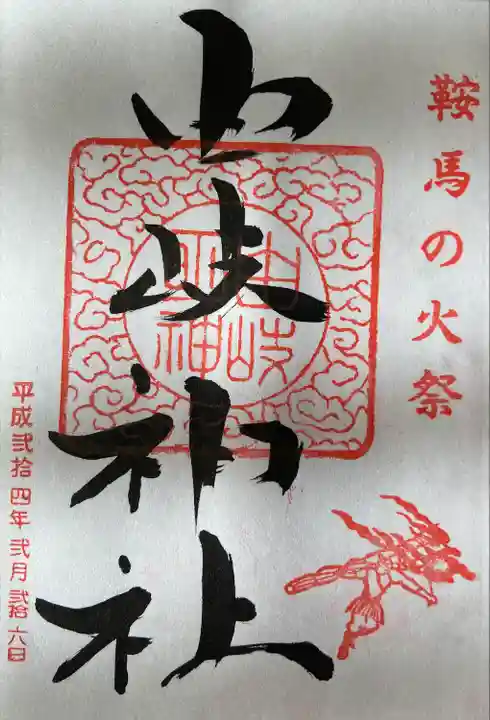 鞍馬の火祭
由岐神社
平成弐拾四年弐月弐拾六日